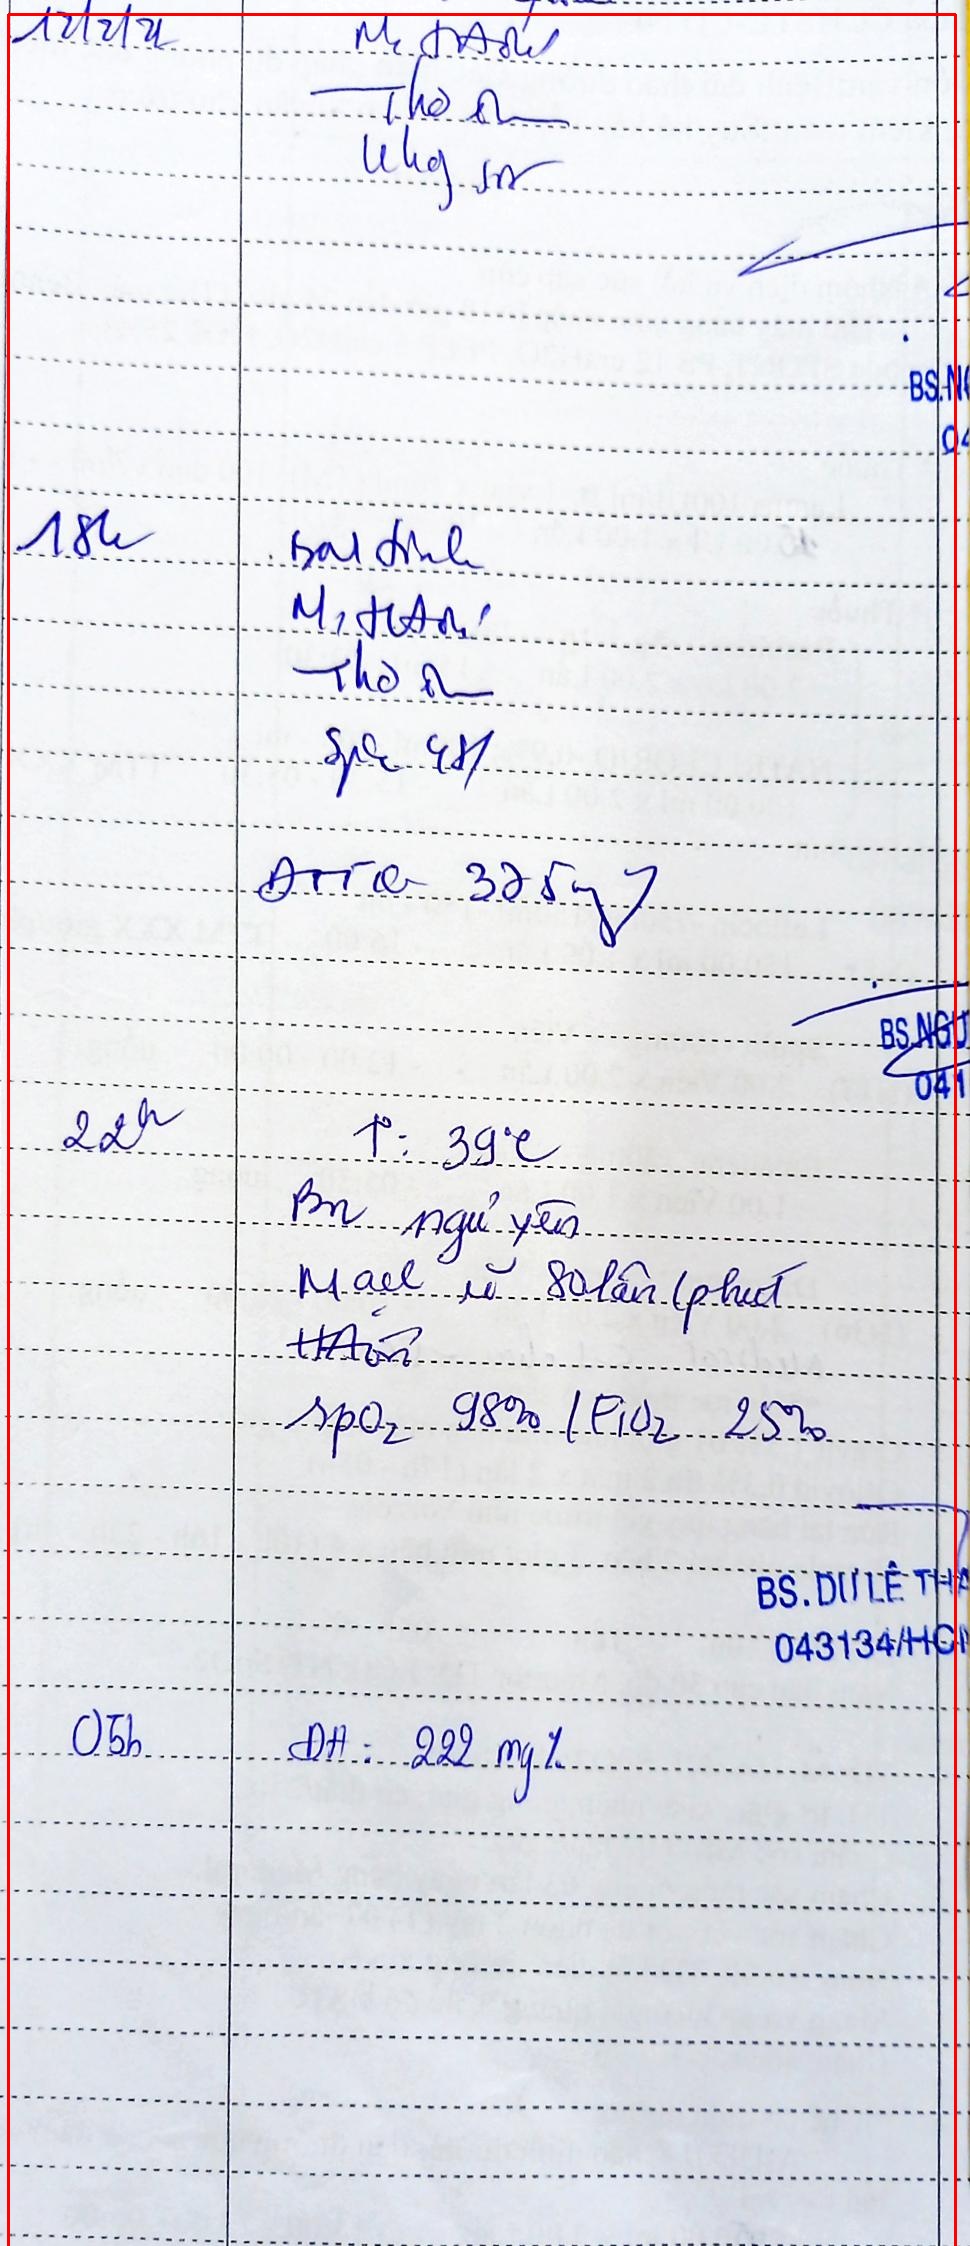 12/2/21 M, HA ổn
Thở êm
Khg sốt
BS.NG
04
18h Bn tỉnh
M, HA ổn
Thở êm
SpO2 98%
325mg
BS.NGU
041
22h T°: 39°C
Bn ngủ yên
Mạch rõ 80 lần/phút
HA ổn
SpO2 98% / FiO2 25%
BS. DƯ LÊ THA
043134/HCM
05h ĐH: 222 mg%